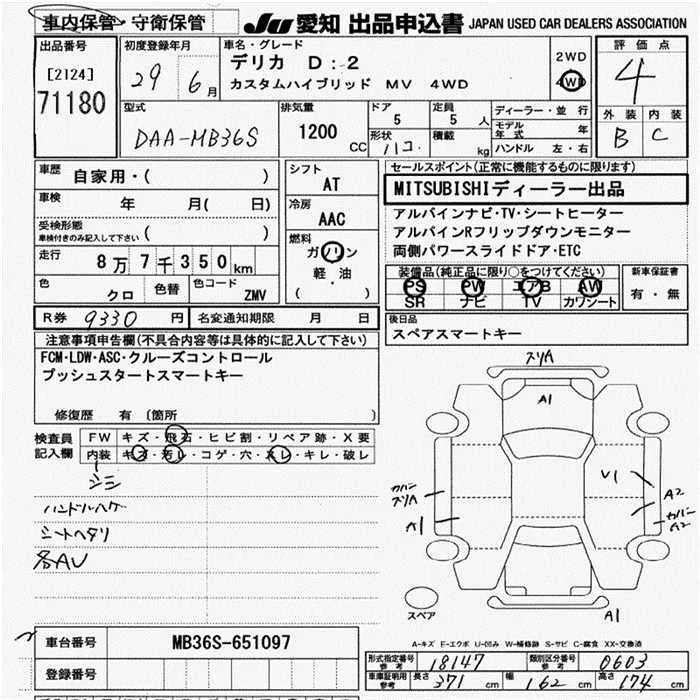 車内保管・守衛保管 JU 愛知 出品申込書 JAPAN USED CAR DEALERS ASSOCIATION
出品番号 [2124] 71180
初度登録年月 29 6月
車名・グレード デリカ D:2
カスタムハイブリッド MV 4WD
2WD
4WD
評価点 4
外装 B 内装 C
型式 DAA-MB36S
排気量 1200 CC
ドア 5 定員 5人
形状 ハコ 積載 kg
ディーラー・並行
モデル年式 年
ハンドル 左・右
車歴 自家用・( )
車検 年 月( 日)
受検形態
車検付きのみ記入して下さい ( )
走行 8万7千350km
色 クロ 色替 色コード ZMV
シフト AT
冷房 AAC
燃料 ガソリン
軽・油
( )
セールスポイント(正常に機能するものに限ります)
MITSUBISHIディーラー出品
アルパインナビ・TV・シートヒーター
アルパインRフリップダウンモニター
両側パワースライドドア・ETC
装備品(純正品に限り○をつけてください)
PS PW エアB AW
SR ナビ TV カワシート
新車保証書
有・無
R券 9330円 名変通知期限 月 日
後日品
スペアスマートキー
注意事項申告欄(不具合内容等は具体的に記入して下さい)
FCM・LDW・ASC・クルーズコントロール
プッシュスタートスマートキー
修復歴 有 (箇所 )
検査員記入欄
FW キズ・飛石・ヒビ割・リペア跡・X要
内装 キズ・汚レ・コゲ・穴・スレ・キレ・破レ
シミ
ハンドルハゲ
シートヘタリ
各AU
スリA
A1
V1
カバースリA
A2
A1
カバーA2
スペア
A1
A-キズ E-エクボ U-凹み W-補修跡 S-サビ C-腐食 XX-交換済
車台番号 MB36S-651097
登録番号
形式指定番号 参考 18147 類別区分番号 参考 0603
車庫証明用 参考 長さ 371 cm 幅 162 cm 高さ 174 cm